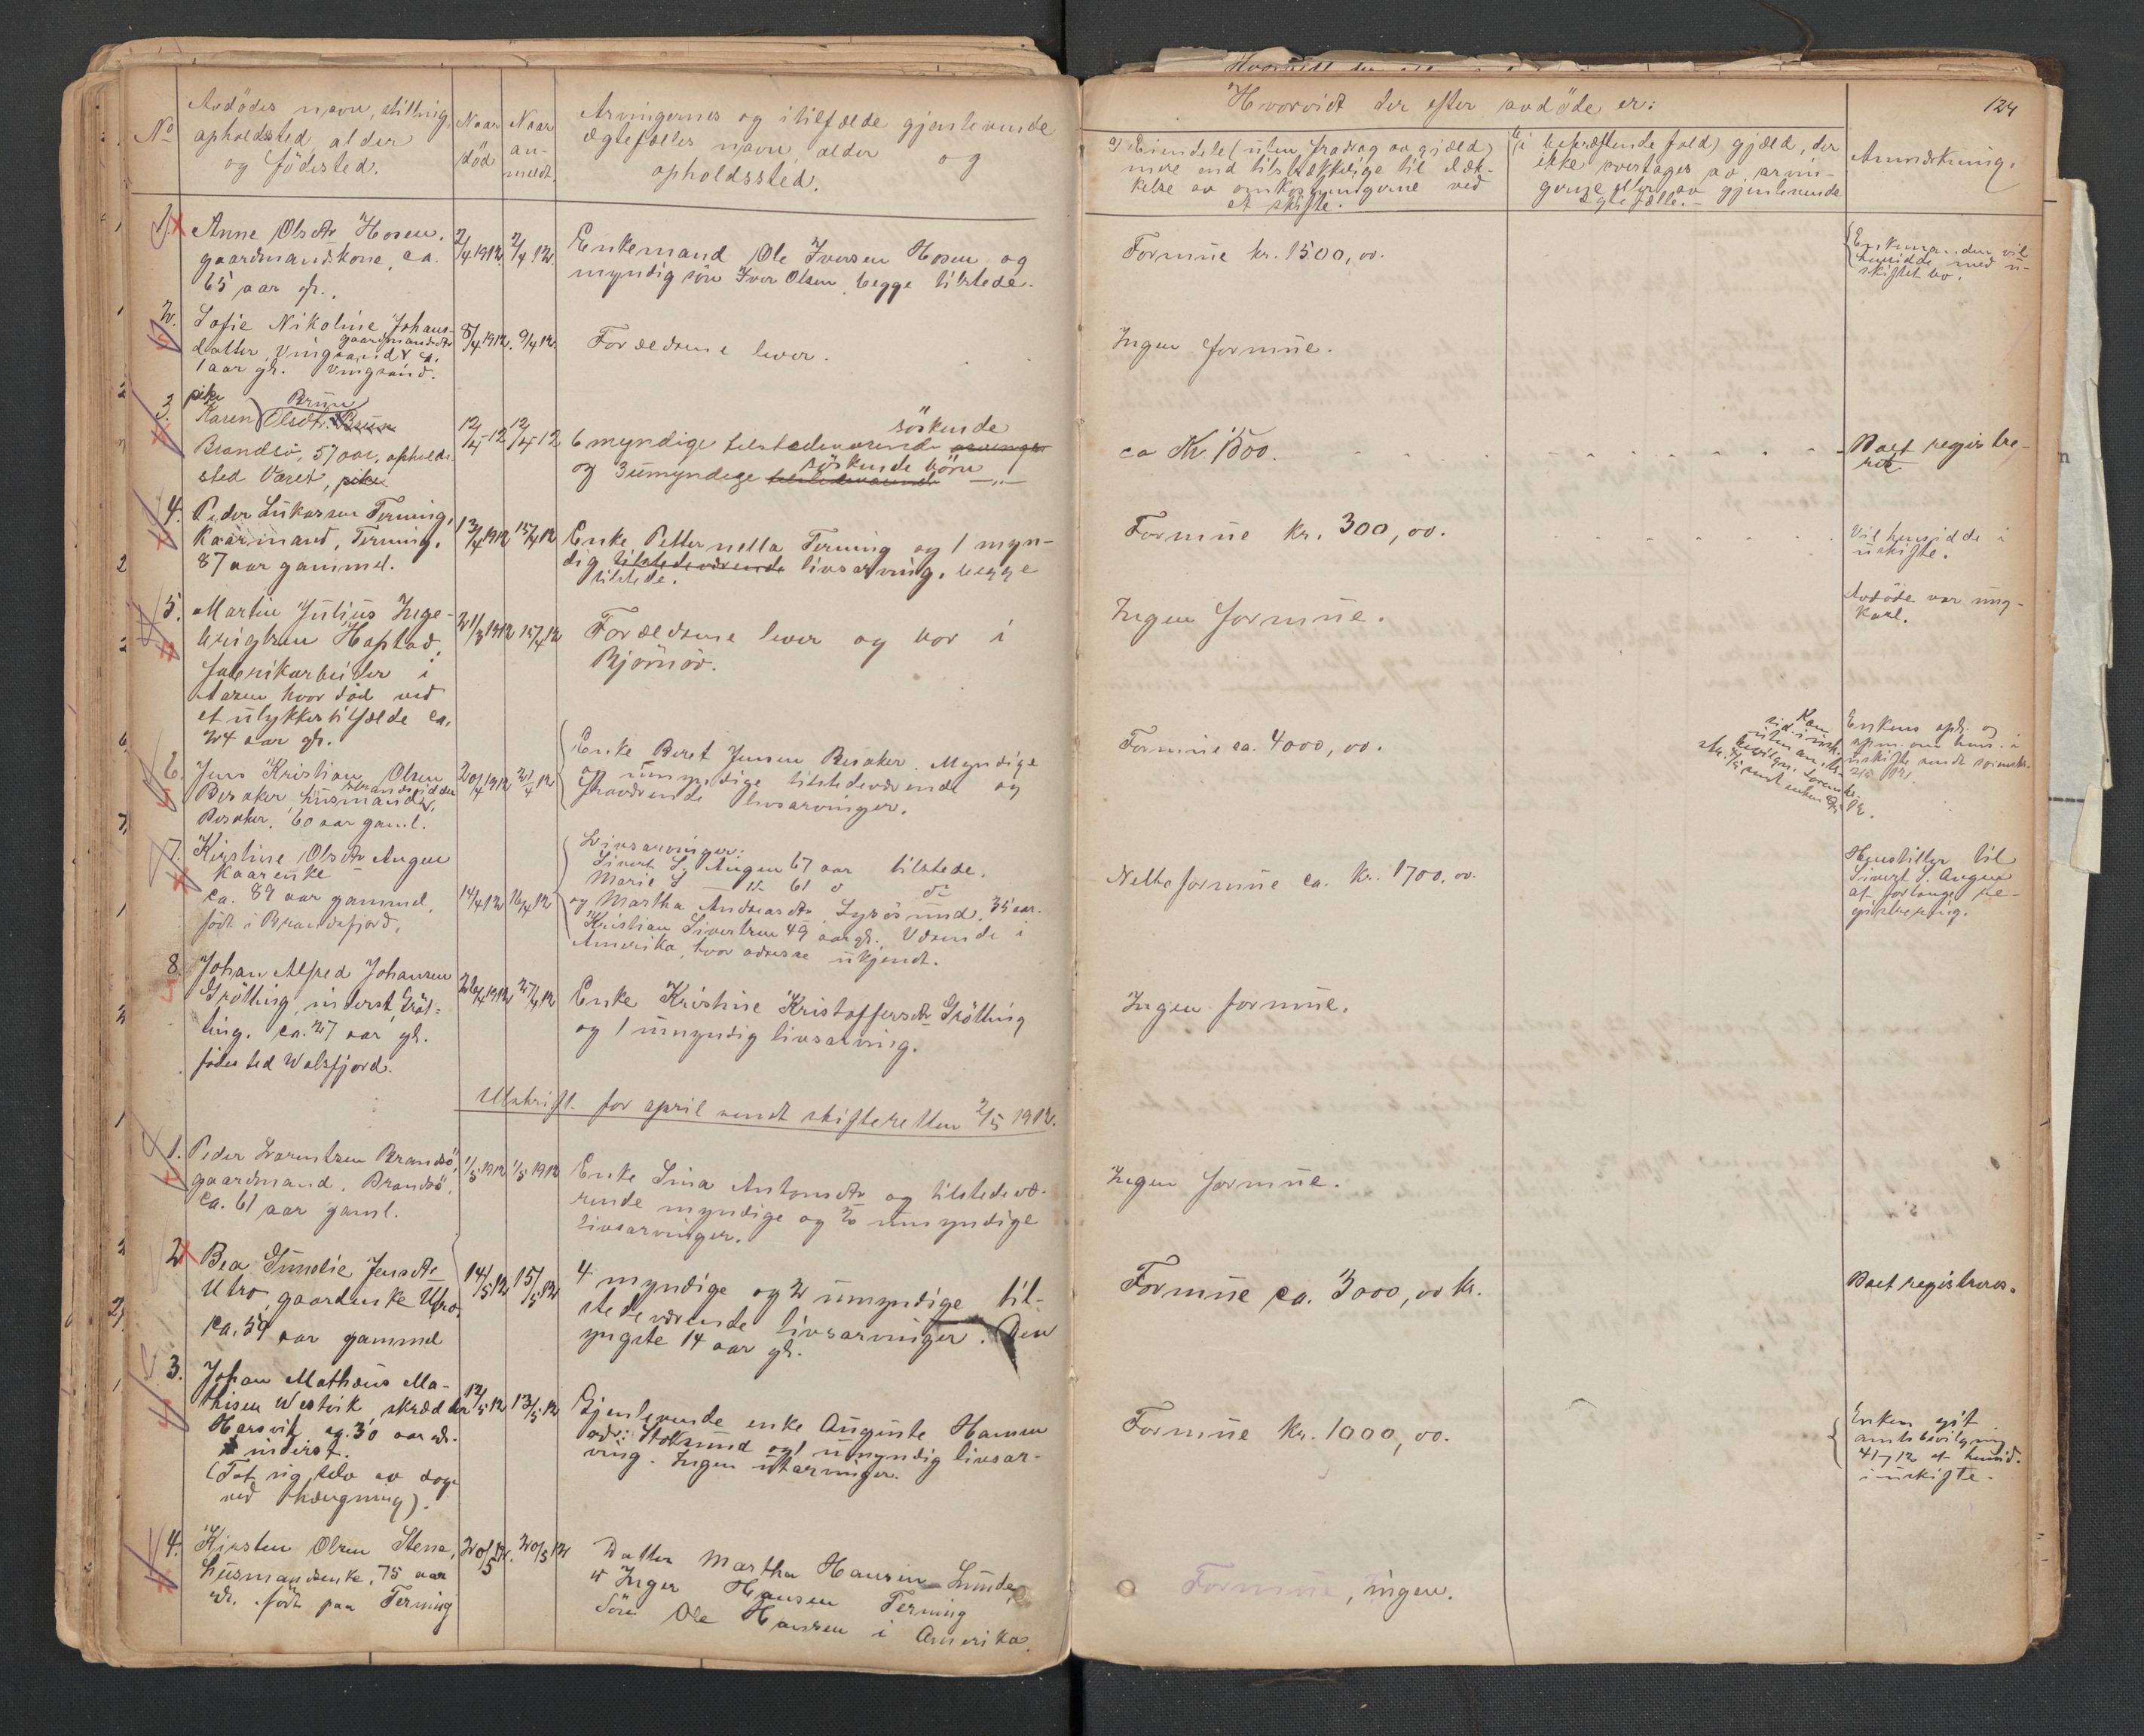 No
Avdödes navn, stilling,
opholdssted, alder
og födested.
Naar
död
Naar
an-
meldt.
Arvingernes og i tilfælde gjenlevende
ægtefælles navn, alder og
opholdssted.
Hvorvidt der efter avdöde er:
124
a) Eiendele (uten fradrag av gjæld)
mere end tilstrækkelige til dæk-
kelse av omkostningerne ved
et skifte.
b) (i bekræftende fald) gjæld, der
ikke overtages av arvin-
gerne eller av gjenlevende
ægtefælle.-
Anmerkning.
1. Anne Olsdtr Hosen.
gaardmandskone, ca.
65 aar gl.
2/4 1912. 2/4 12.
Enkemand Ole Iversen Hosen og
myndig sön Iver Olsen, begge tilstede.
Formue kr. 1500,00.
Enkemanden vil
hensidde med u-
skiftet bo.
2. Sofie Nikoline Johans-
gaardmandsdtr
datter, Vingsand ca.
1 aar gl. Vingsand.
8/4 1912. 9/4 12.
Forældrene lever.
Ingen formue.
pike
Brun
3. Karen Olsdtr. Brun
Brandsö, 57 aar, opholds-
sted Været, pike
12/4-12 12/4 12
söskende
6 myndige tilstedeværende arvinger
söskende börn
og 3 umyndige tilstedeværende —„—
ca Kr 1500.
Boet registre-
ret
4. Peder Lukassen Terning,
Kaarmand, Terning.
87 aar gammel.
13/4 1912 15/4 12
Enke Petternella Terning og 1 myn-
dig tilstedeværende livsarving, begge
tilstede.
Formue kr. 300,00.
Vil hensidde i
uskifte.
5. Martin Julius Inge-
brigtsen Hopstad,
fabrikarbeider i
hvor död ved
et ulykkestilfælde ca.
24 aar gl.
31/3 1912 15/4 12
Forældrene lever og bor i
Björnör.
Ingen formue.
Avdöde var ung-
karl.
6. Jens Kristian Olsen
strandsidder
Besaker, husmand,
Besaker, 60 aar gaml.
20/4 1912 21/4 12
Enke Beret Jensen Besaker. Myndige
og umyndige tilstedeværende og
fraværende livsarvinger.
Formue ca. 4000,00.
Kan
sid. i usk.
uten amts-
bevilgn.
Enkens
om hens. i
uskifte sendt
7. Kirstine Olsdtr Angen
Kaarenke
ca. 89 aar gammel,
födt i Brandsfjord.
14/4 12 16/4 12
Livsarvinger:
Sivert S. Angen 67 aar tilstede.
Marie S — 61
og Martha Andreasdtr, Lysösund, 35 aar.
Kristian Sivertsen 49 aar gl. Værende i
Amerika, hvor adresse ukjendt.
Nettoformue ca. kr. 1700,00.
Henstiller til
Sivert S. Angen
at forlange re-
gistrering.
8. Johan Alfred Johansen
Grötting, inderst, Gröt-
ting. ca. 27 aar gl.
födested Walsfjord.
26/4 1912 27/4 12
Enke Kristine Kristoffersdtr Grötting
og 1 umyndig livsarving.
Ingen formue.
Utskrift for april sendt skifteretten 2/5 1912.
1. Peder Lorentzen Brandsö,
gaardmand, Brandsö,
ca. 61 aar gaml.
1/5 1912 1/5 1912
Enke Lina Antonsdtr og tilstedevæ-
rende myndige og 2 umyndige
livsarvinger.
Ingen formue.
2 Bea Gunelie Jensdtr
Utro, gaardenke Utro,
ca. 59 aar gammel
14/5 12 15/5 12
4 myndige og 2 umyndige til-
stedeværende livsarvinger. Den
yngste 14 aar gl.
Formue ca. 3000,00 kr.
Boet registreres.
3. Johan Mathæus Ma-
thisen Westvik, skrædder
Harsvik, ca. 30 aar gl.
inderst.
(Tat sig selv av dage
ved hængning).
12/5 12 13/5 12
Gjenlevende enke Auguste Hansen
adr: Stoksund og 1 umyndig livsar-
ving. Ingen utarvinger.
Formue kr. 1000,00.
Enken git
amtsbevilgning
4/7 12 at hensid.
i uskifte.
4. Kirsten Olsen Stene,
husmandsenke, 75 aar
gl. födt paa Terning
20/5 12. 20/5 12
Datter Martha Hansen Lunde,
" Inger Hansen Terning
Sön Ole Hansen i Amerika.
Formue, ingen.